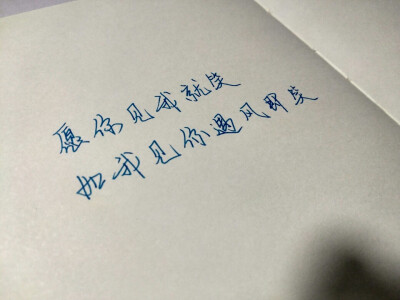 愿你见我就笑
如我见你遇风即笑